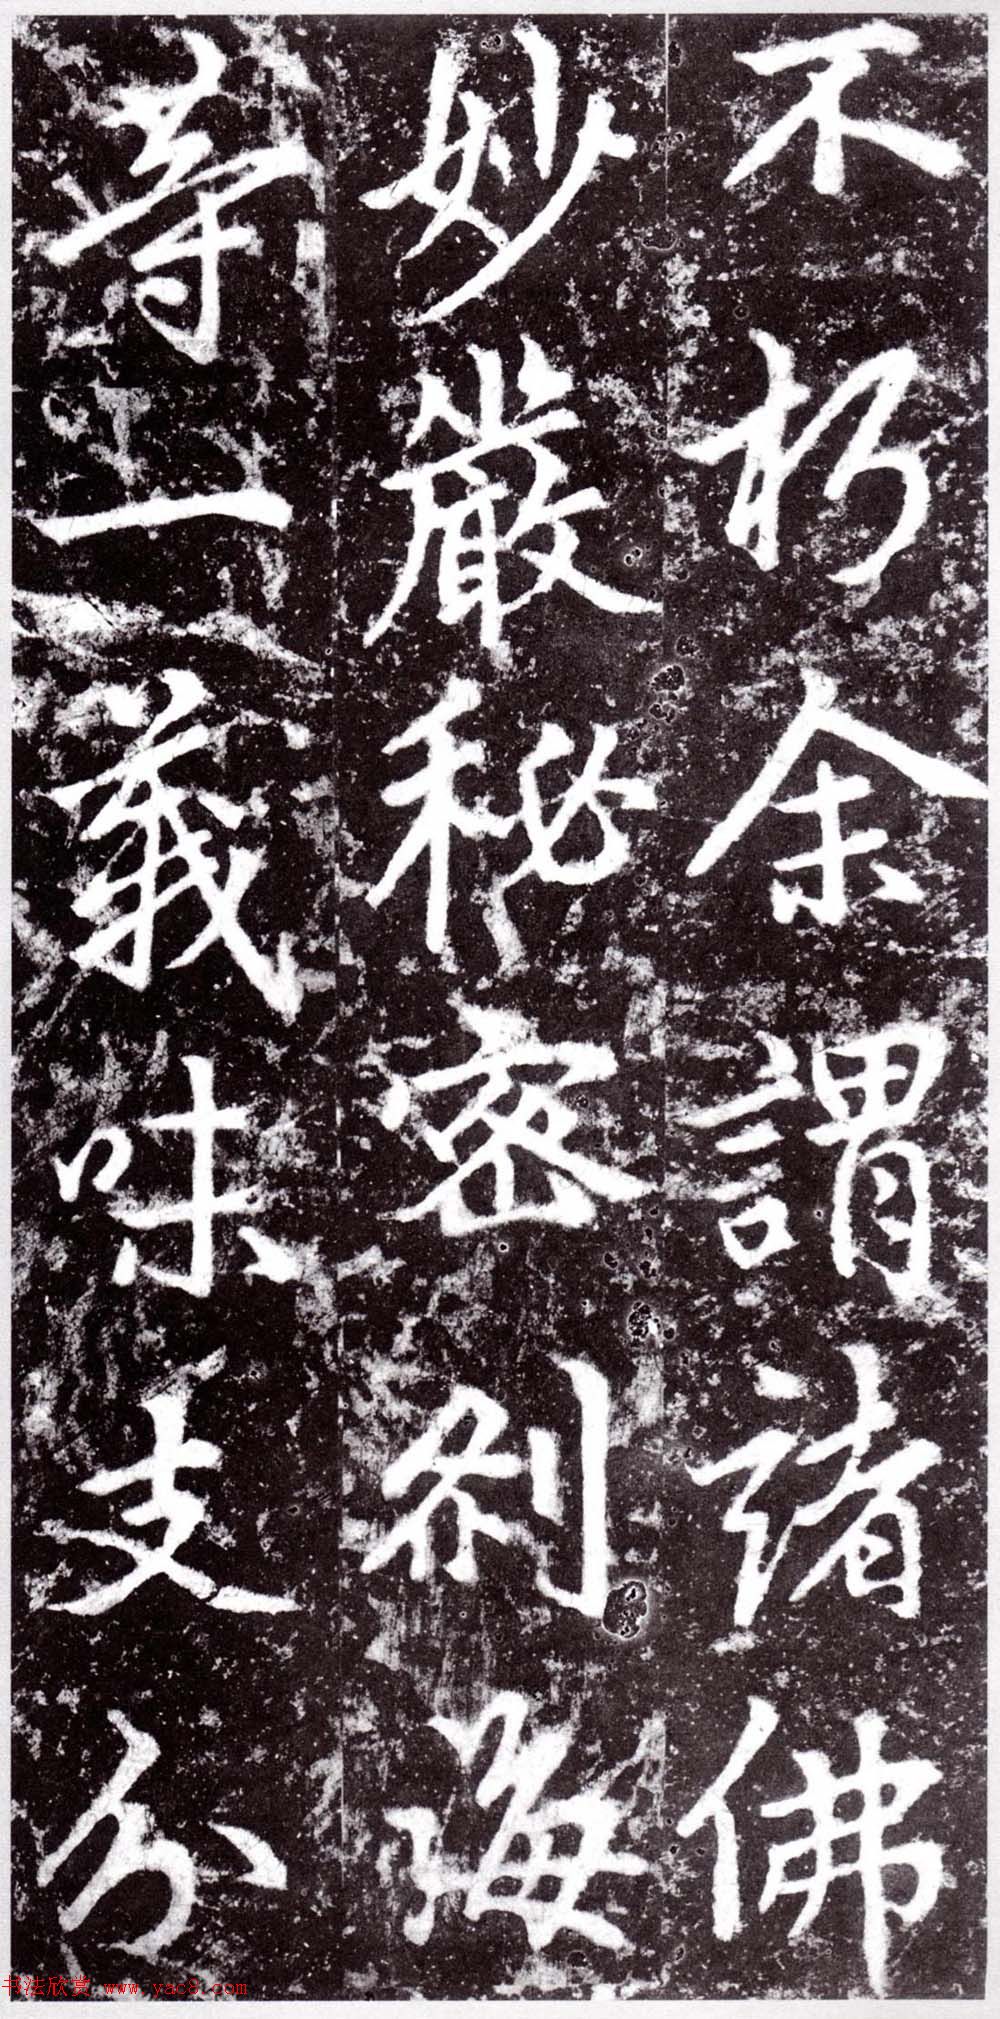 不朽余謂諸佛
妙嚴秘密剎海
等一義味支分
书法欣赏 www.yac8.com